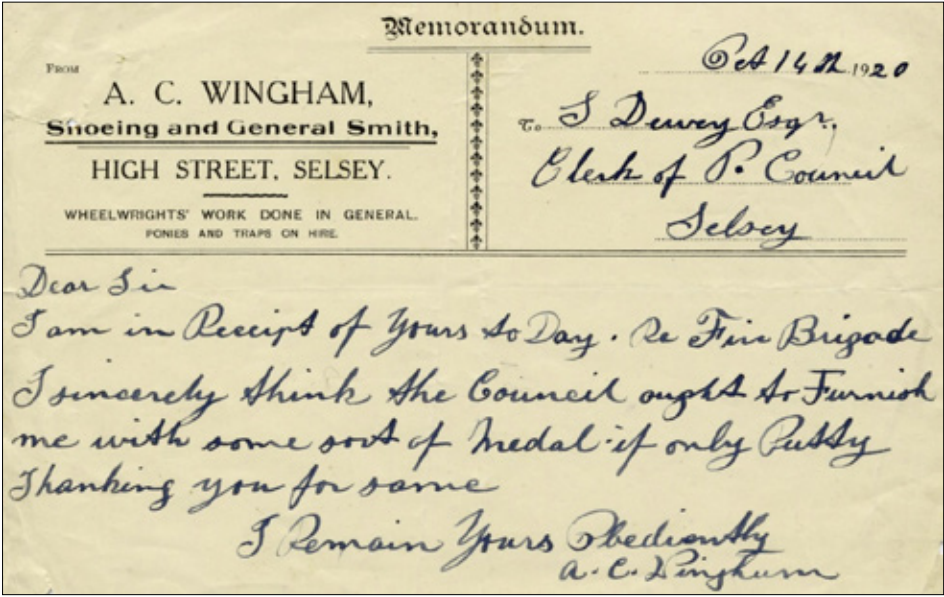 Memorandum.
FROM
A. C. WINGHAM,
Shoeing and General Smith,
HIGH STREET, SELSEY.
WHEELWRIGHTS' WORK DONE IN GENERAL.
PONIES AND TRAPS ON HIRE.
Oct 14th 1920
To S Dewey Esqr.
Clerk of P. Council
Selsey
Dear Sir
I am in Receipt of Yours to Day. Re Fire Brigade
I sincerely think the Council ought to Furnish
me with some sort of Medal if only Putty
Thanking you for same
I Remain Yours Obediently
A. C. Wingham